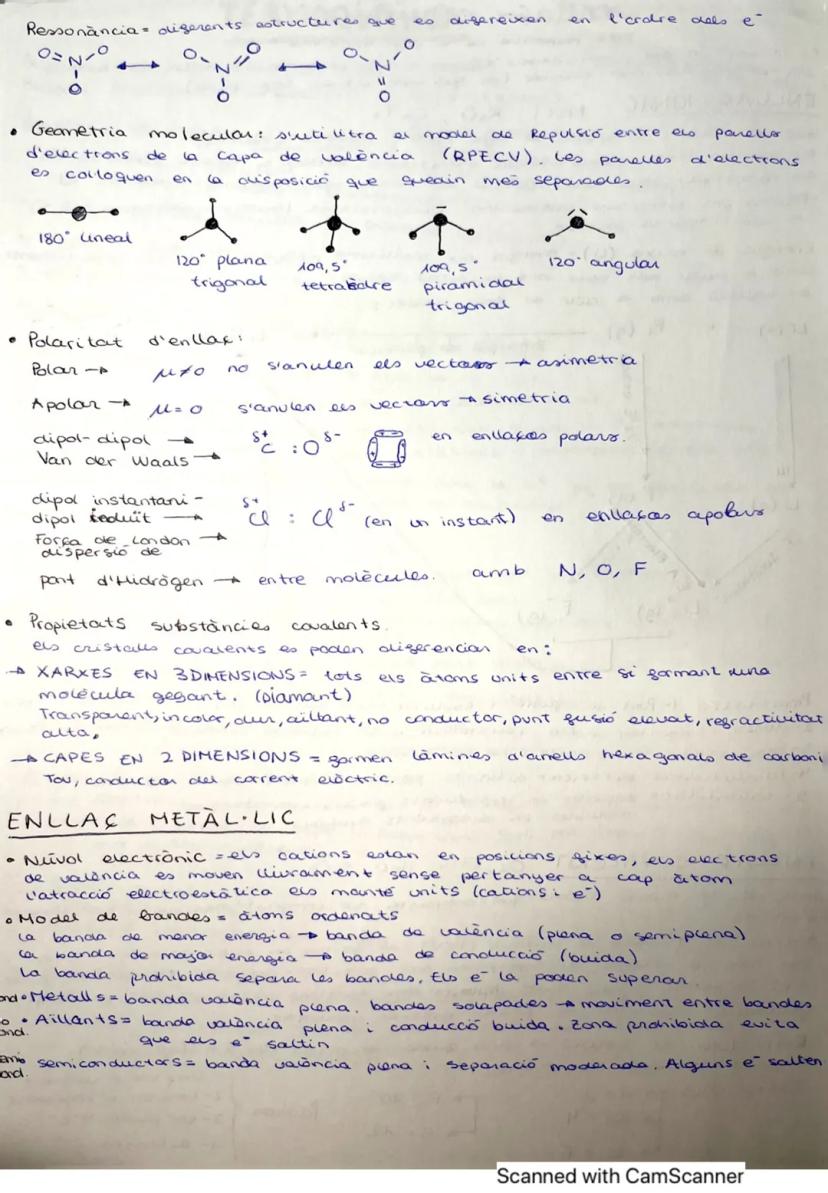 Ressonància = diferents estructures que es diferèixen en l'ordre dels e⁻
O=N-O ⟷ O-N=O ⟷ O-N-O
O O O
• Geometria molecular: s'utilitza el model de Repulsió entre els parells
d'electrons de la capa de valència (RPECV). Les parelles d'electrons
es col·loquen en la disposició que quedin més separades.
180° lineal
120° plana trigonal
109,5° tetraèdre
109,5° piramidal trigonal
120° angular
• Polaritat d'enllaç:
Polar → μ≠0 no s'anulen els vectors → asimetria
Apolar → μ=0 s'anulen els vectors → simetria
dipol-dipol → δ+ C : O δ- en enllaços polars.
Van der Waals →
dipol instantani-
dipol induït → δ+ Cl : Cl δ- (en un instant) en enllaços apolars
Força de London →
dispersió de
pont d'Hidrògen → entre molècules. amb N, O, F
• Propietats substàncies covalents.
els cristalls covalents es poden diferenciar en:
→ XARXES EN 3 DIMENSIONS = tots els àtoms units entre si formant una
molècula gegant. (Diamant)
Transparent, incolor, dur, aïllant, no conductor, punt fusió elevat, refractivitat
alta,
→ CAPES EN 2 DIMENSIONS = formen làmines d'anells hexagonals de carboni
Tou, conductor del corrent elèctric.
ENLLAÇ METÀL·LIC
• Núvol electrònic = els cations estan en posicions fixes, els electrons
de valència es moven lliurament sense pertanyer a cap àtom
l'atracció electroestàtica els manté units (cations i e⁻)
• Model de bandes = àtoms ordenats
La banda de menor energia → banda de valència (plena o semiplena)
La banda de major energia → banda de conducció (buida)
La banda prohibida separa les bandes. Els e⁻ la poden superar.
ond • Metalls = banda valència plena, bandes solapades → moviment entre bandes
• Aïllants = banda valència plena i conducció buida. Zona prohibida evita
que els e⁻ saltin
semiconductors = banda valència plena i separació moderada. Alguns e⁻ salten
Scanned with CamScanner